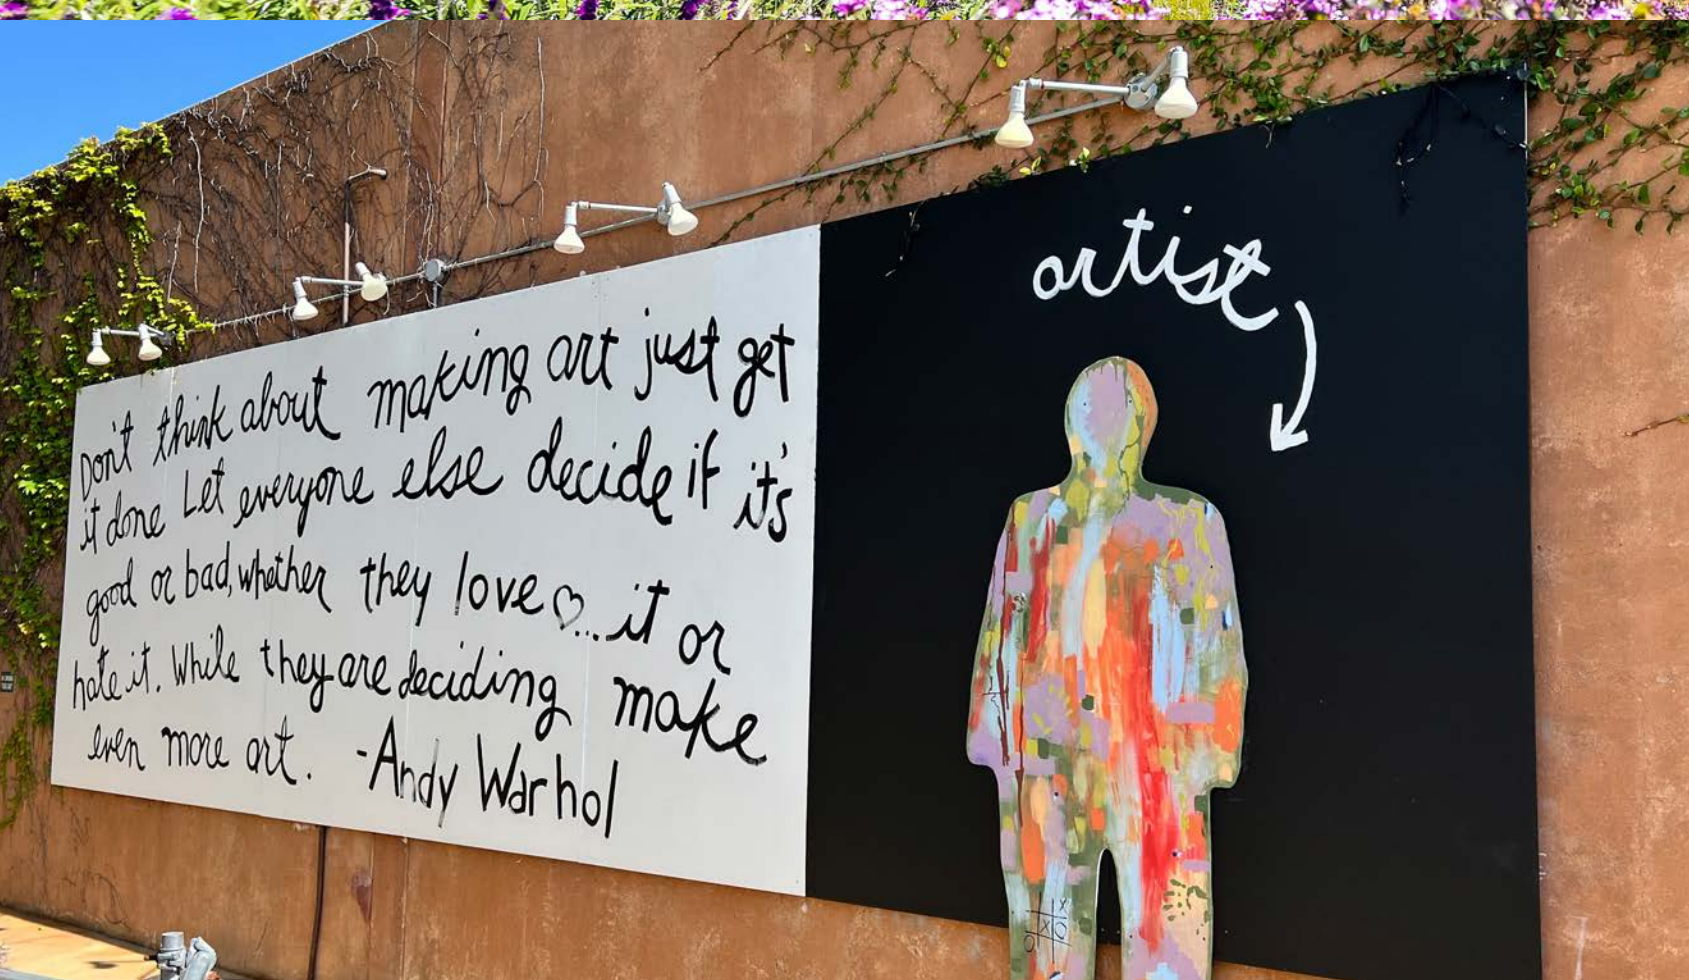 Don't think about making art just get
it done Let everyone else decide if it's
good or bad, whether they love ♡...it or
hate it. While they are deciding make
even more art. -Andy Warhol
artist